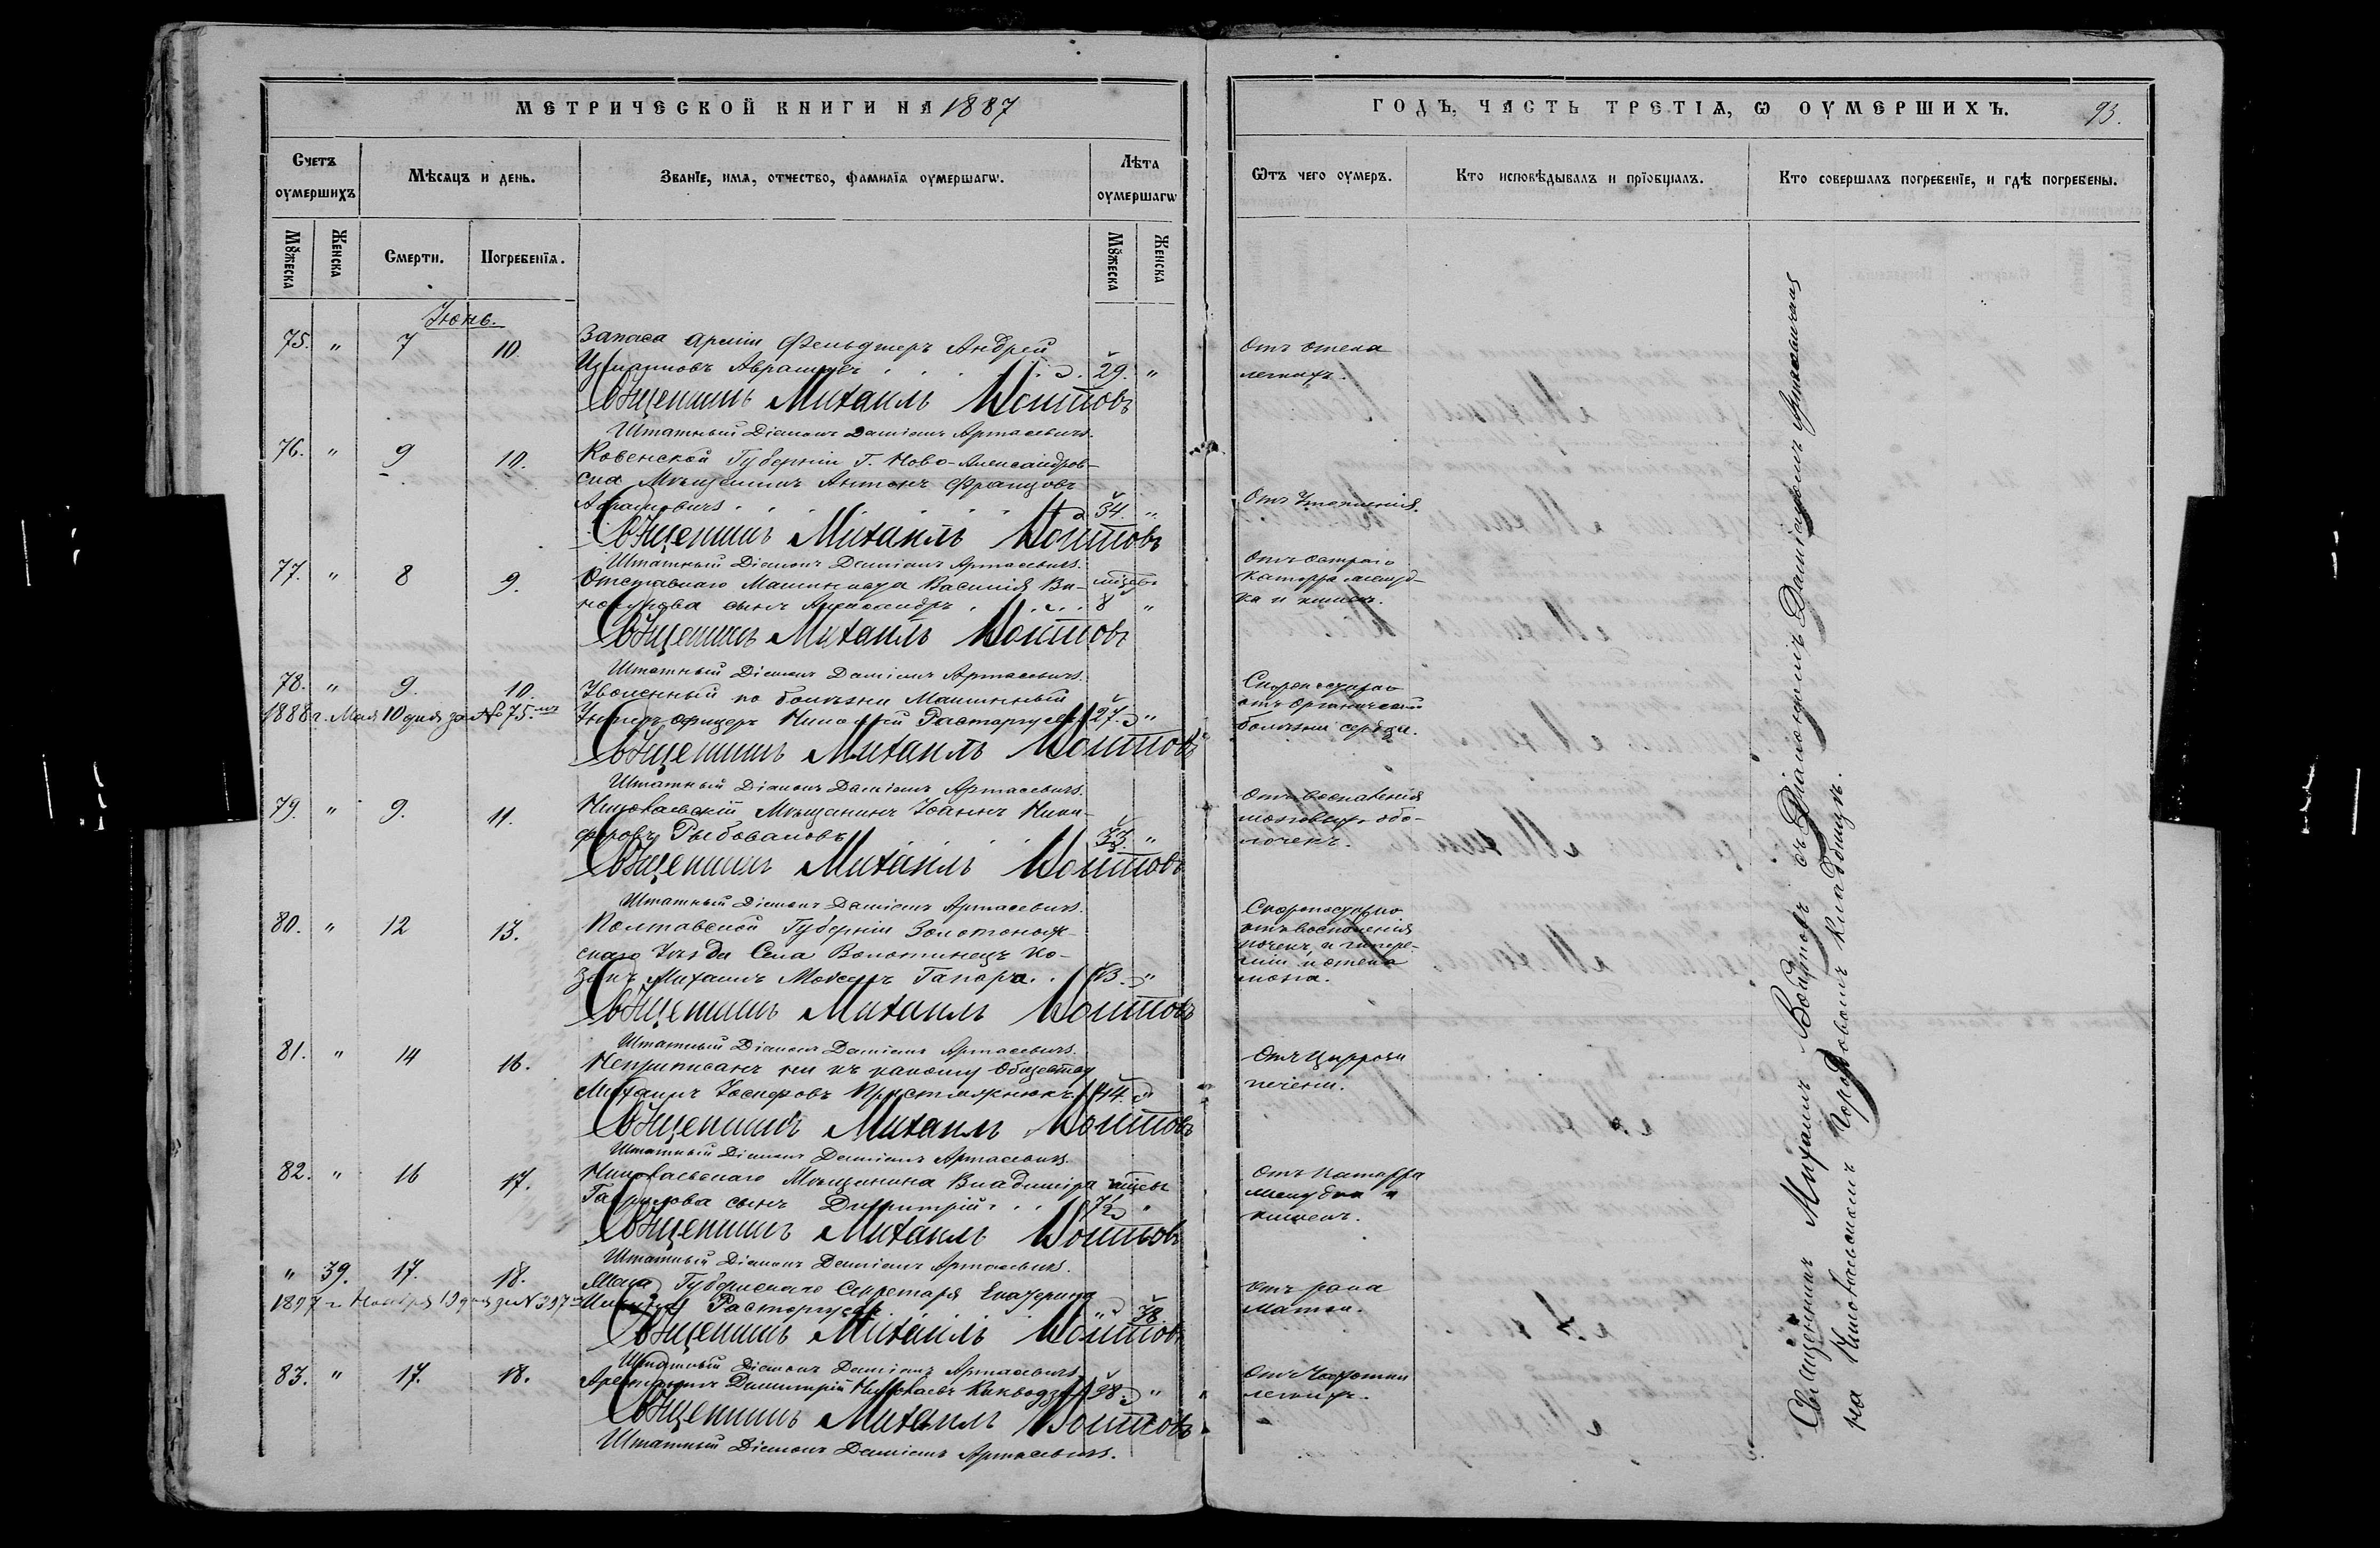 МЕТРИЧЕСКОЙ КНИГИ НА 1887
Счетъ оумершихъ
Мѣсяцъ и день.
Званіе, имя, отчество, фамилія оумершагѡ.
Лѣта оумершагѡ
Мꙋжеска
Женска
Смерти.
Погребенія.
Мꙋжеска
Женска
Іюнь.
75. " 7 10. Запаса арміи Фельдшеръ Андрей
Авраамовъ 29. "
Священникъ Михаилъ Войтовъ
Штатный Діаконъ Даміанъ Артасевичъ.
76. " 9 10. Ковенской Губерніи Г. Ново-Александров-
ска Мѣщанинъ Антонъ Францовъ
Абрамовичъ 34. "
Священникъ Михаилъ Войтовъ
Штатный Діаконъ Даміанъ Артасевичъ.
77. " 8 9. Отставнаго Машиниста Василія Ви-
нокурова сынъ Александръ мѣсцевъ 8 "
Священникъ Михаилъ Войтовъ
Штатный Діаконъ Даміанъ Артасевичъ.
78. " 9. 10. Уволенный по болѣзни Машинный
1888 г. Мая 10 дня за № 75. Унтеръ-офицеръ Николай Расторгуевъ 27. "
Священникъ Михаилъ Войтовъ
Штатный Діаконъ Даміанъ Артасевичъ.
79. " 9. 11. Николаевскій Мѣщанинъ Іоаннъ Ники-
форовъ Рыбоваловъ 33. "
Священникъ Михаилъ Войтовъ
Штатный Діаконъ Даміанъ Артасевичъ.
80. " 12 13. Полтавской Губерніи Золотонош-
скаго Уѣзда Села Вологинецъ Ко-
закъ Михаилъ 43. "
Священникъ Михаилъ Войтовъ
Штатный Діаконъ Даміанъ Артасевичъ.
81. " 14 16. Неприписанъ ни къ какому Обществу
Михаилъ Іосифовъ 44. "
Священникъ Михаилъ Войтовъ
Штатный Діаконъ Даміанъ Артасевичъ.
82. " 16 17. Николаевскаго Мѣщанина Владиміра мѣсцевъ
Гаврилова сынъ Димитрій "
Священникъ Михаилъ Войтовъ
Штатный Діаконъ Даміанъ Артасевичъ.
" 39. 17. 18. Жена Губернскаго Секретаря Екатерина
Расторгуева " 38.
Священникъ Михаилъ Войтовъ
Штатный Діаконъ Даміанъ Артасевичъ.
83. " 17. 18. Арестантъ Димитрій Николаевъ 28. "
Священникъ Михаилъ Войтовъ
Штатный Діаконъ Даміанъ Артасевичъ.
ГОДЪ, ЧАСТЬ ТРЕТІЯ, Ѡ ОУМЕРШИХЪ.
93.
Ѿтъ чего оумеръ.
Кто исповѣдывалъ и пріобщалъ.
Кто совершалъ погребеніе, и гдѣ погребены.
Отъ отека
легкихъ.
Отъ Утопленія.
Отъ остраго
катарра желуд-
ка и кишекъ.
Скоропостижно
отъ органической
болѣзни сердца.
Отъ воспаленія
мозговыхъ обо-
лочекъ.
Скоропостижно
отъ воспаленія
почекъ и гипере-
міи и отека
мозга.
Отъ Цирроза
печени.
Отъ катарра
желудка и
кишекъ.
Отъ рака
матки.
Отъ Чахотки
легкихъ.
Священникъ Михаилъ Войтовъ съ Діакономъ Даміаномъ Артасевичемъ
на Николаевскомъ Городовомъ Кладбищѣ.